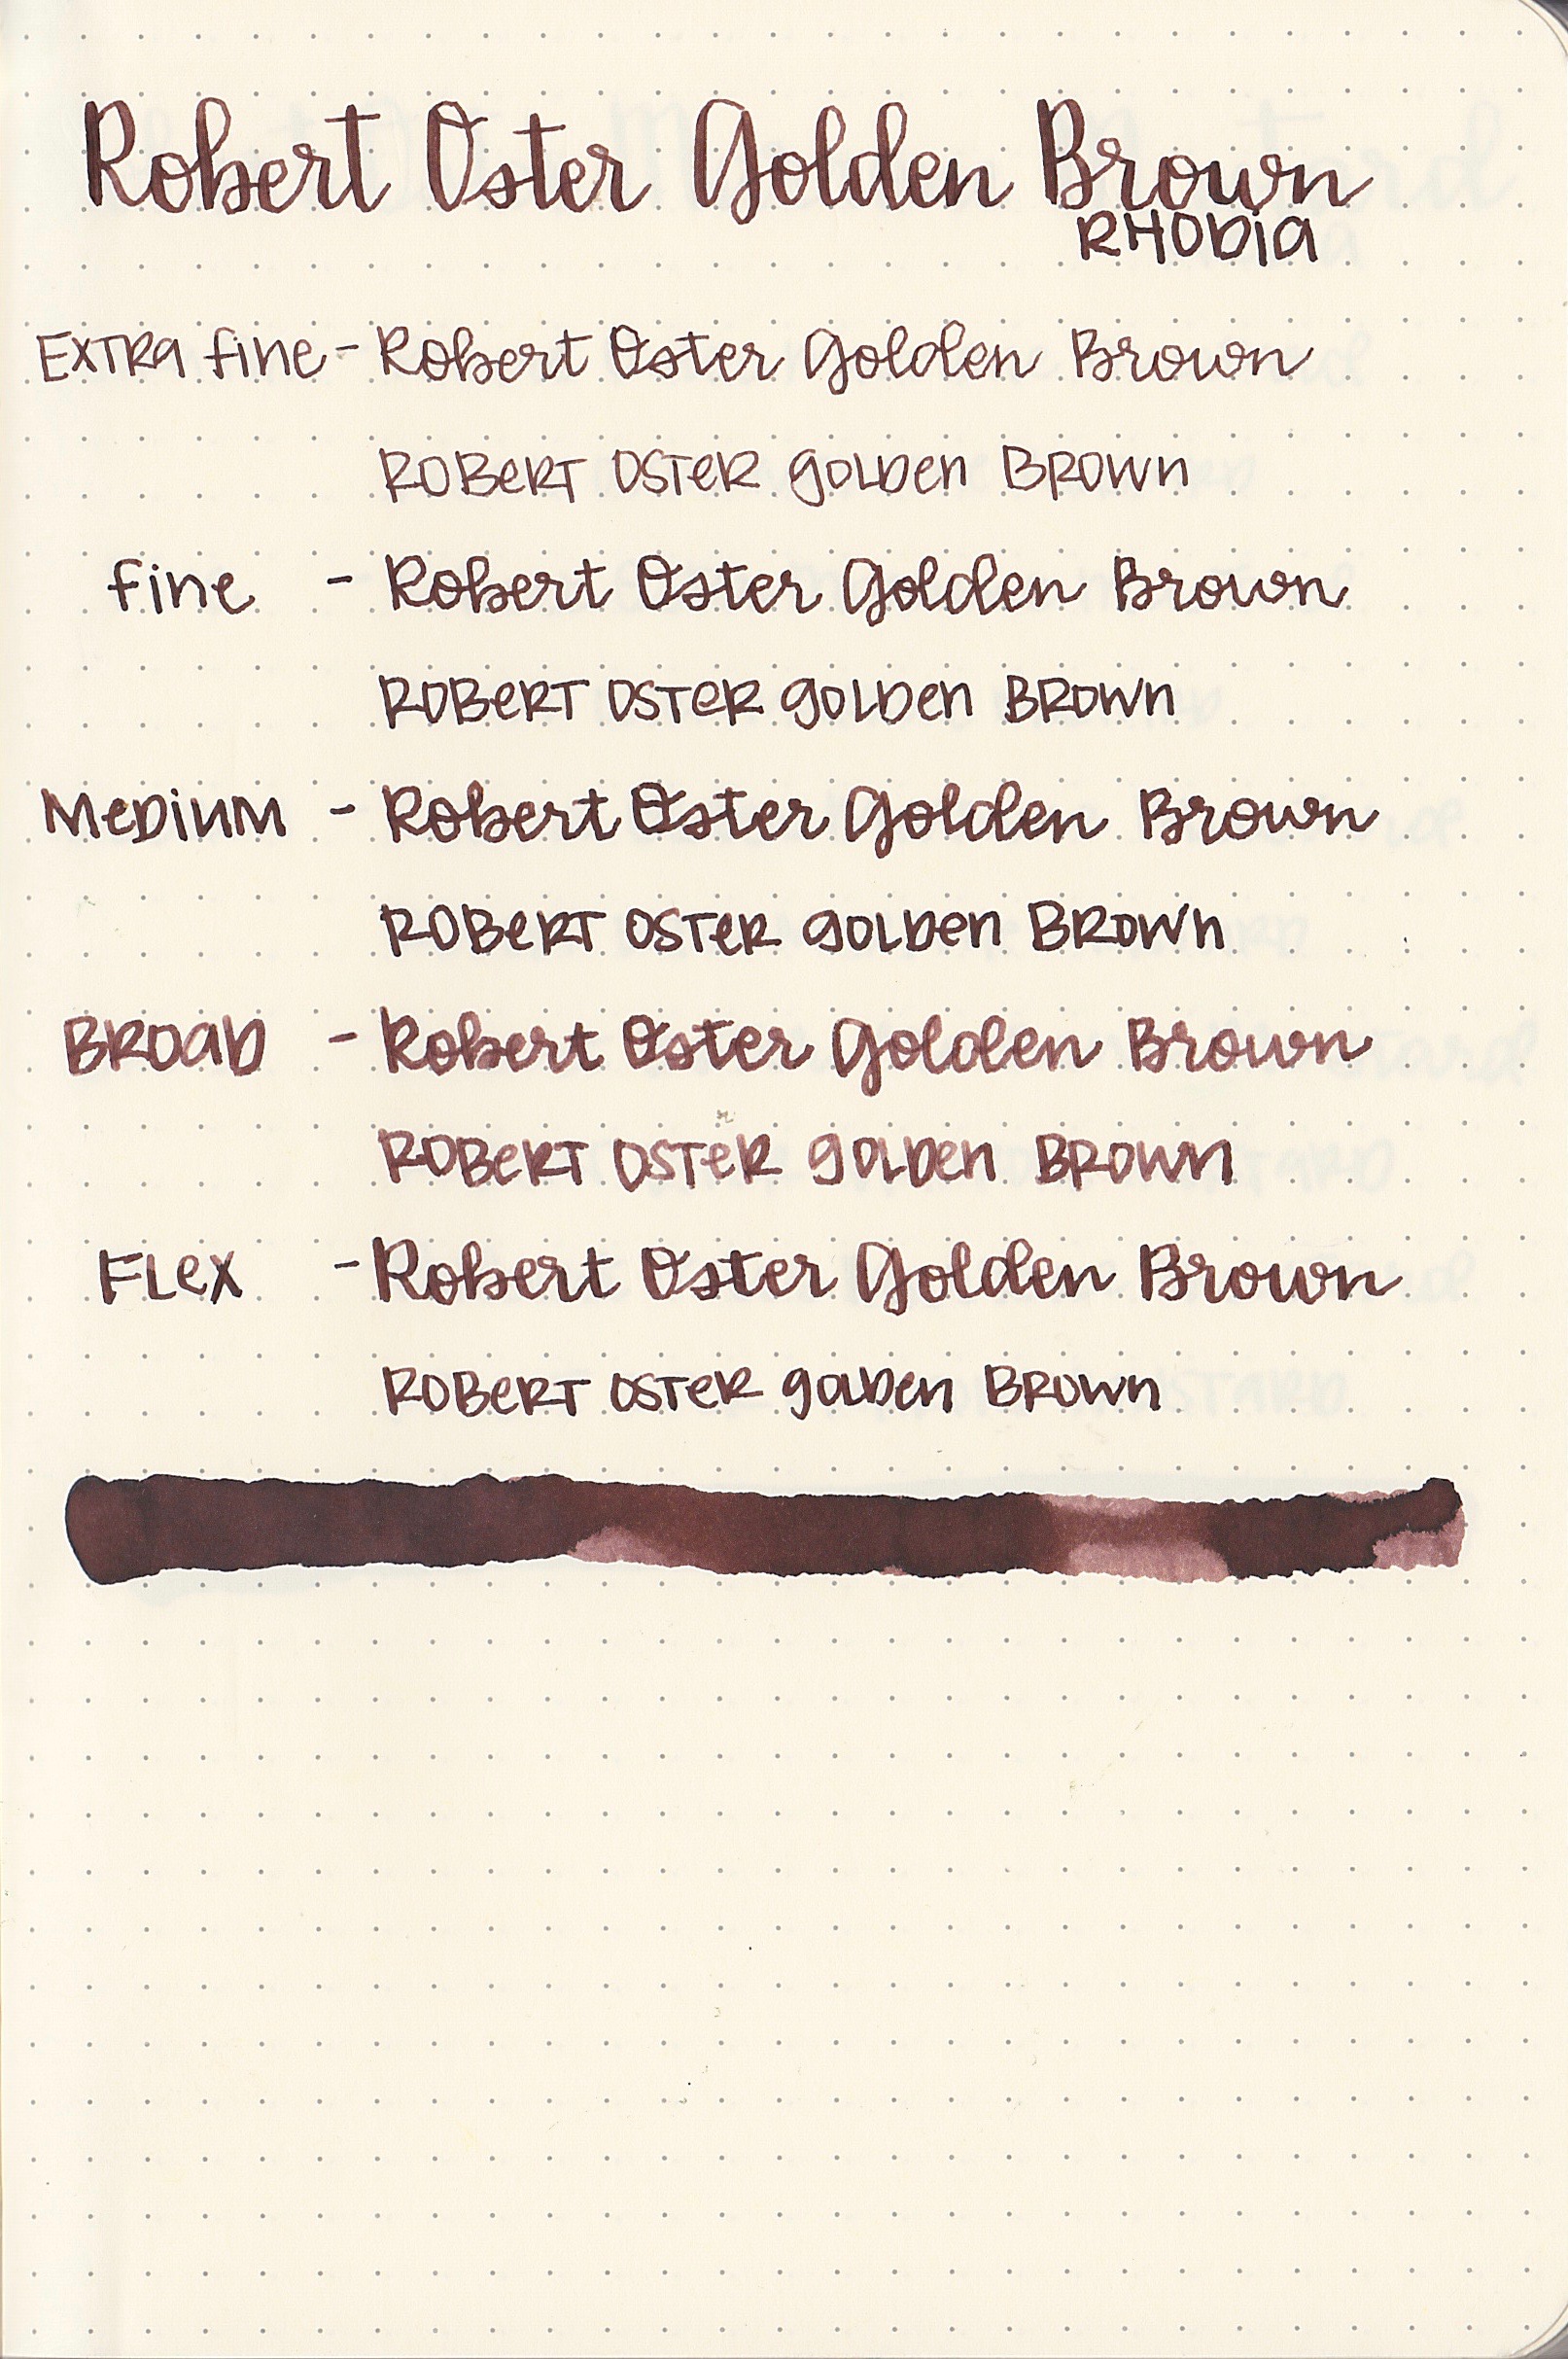 Robert Oster Golden Brown
RHODiA
EXTRA fine - Robert Oster Golden Brown
ROBeRT OSTeR golDen BROWn
fine - Robert Oster Golden Brown
ROBeRT OSTeR golDen BROWn
MeDiuM - Robert Oster Golden Brown
ROBeRT OSTeR golDen BROWn
BROaD - Robert Oster Golden Brown
ROBeRT OSTeR golDen BROWn
FLeX - Robert Oster Golden Brown
ROBeRT OSTeR golDen BROWn